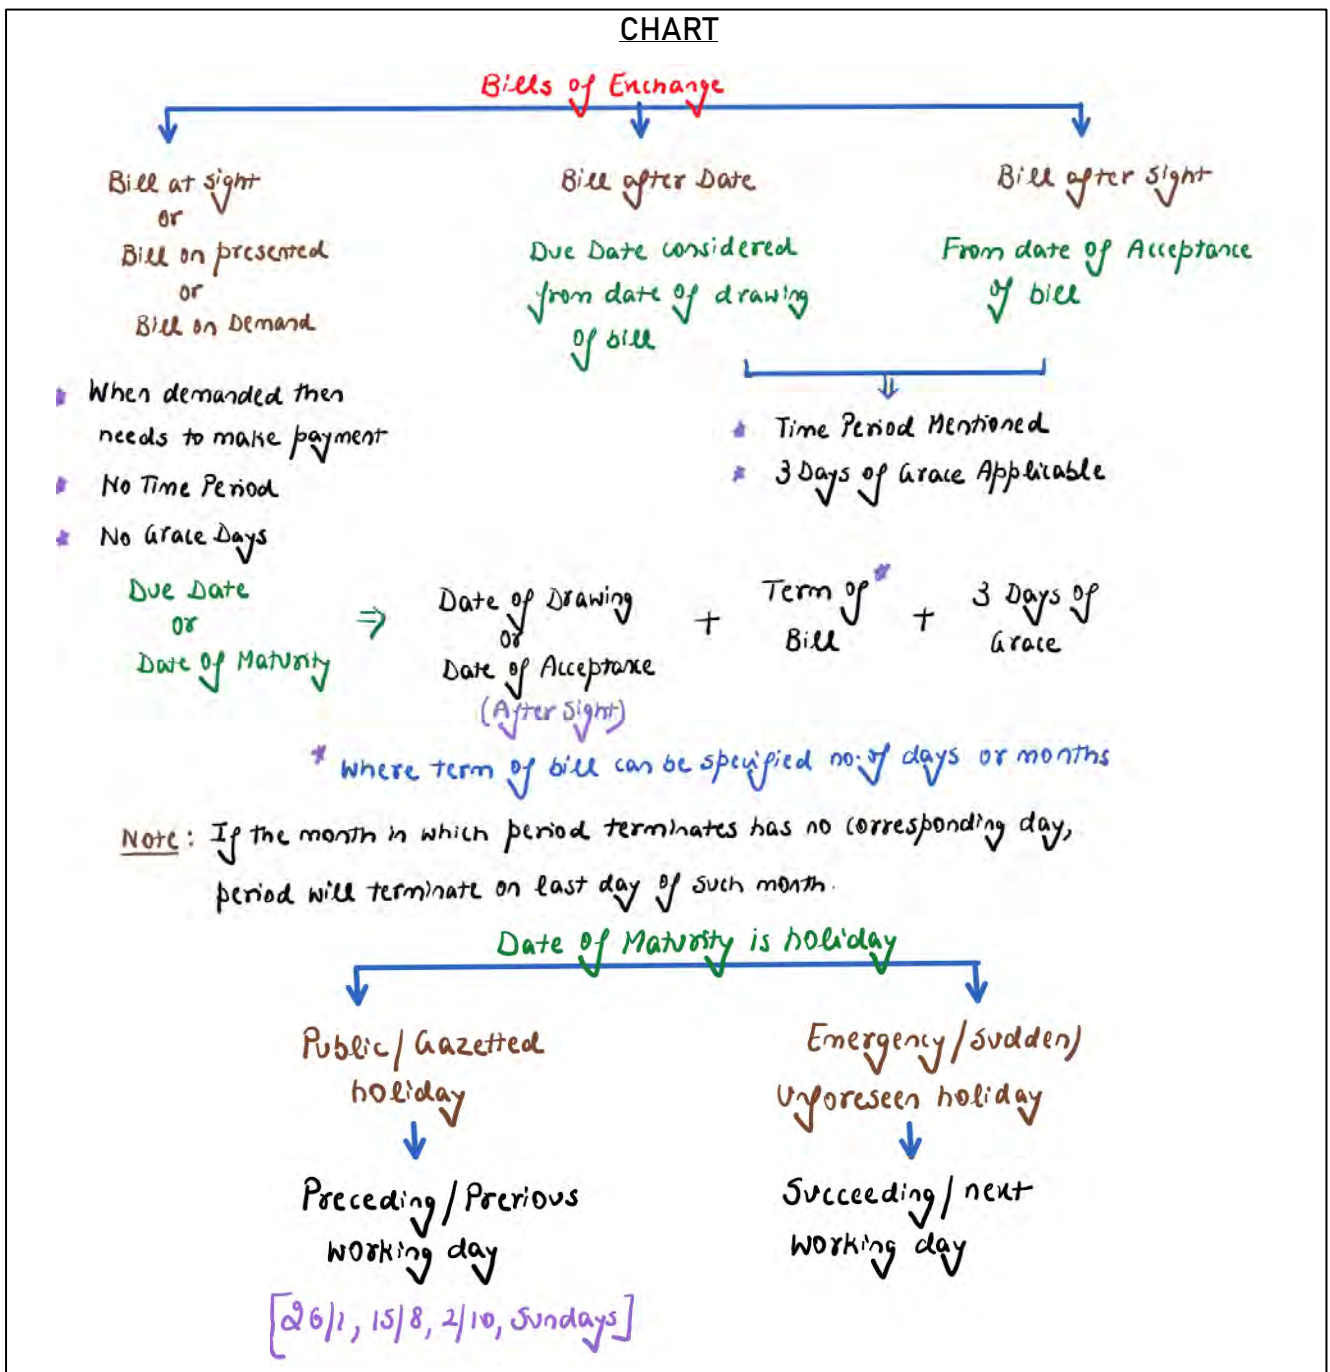 CHART
Bills of Exchange
Bill at sight
or
Bill on presented
or
Bill on Demand
* When demanded then
needs to make payment
* No Time Period
* No Grace Days
Bill after Date
Due Date considered
from date of drawing
of bill
Bill after sight
From date of Acceptance
of bill
* Time Period Mentioned
* 3 Days of Grace Applicable
Due Date
or
Date of Maturity
⇒
Date of Drawing
or
Date of Acceptance
(After Sight)
+
Term of *
Bill
+
3 Days of
Grace
* Where term of bill can be specified no. of days or months
Note: If the month in which period terminates has no corresponding day,
period will terminate on last day of such month.
Date of Maturity is holiday
Public/Gazetted
holiday
Preceding/Previous
working day
[26/1, 15/8, 2/10, Sundays]
Emergency/Sudden/
Unforeseen holiday
Succeeding/next
working day